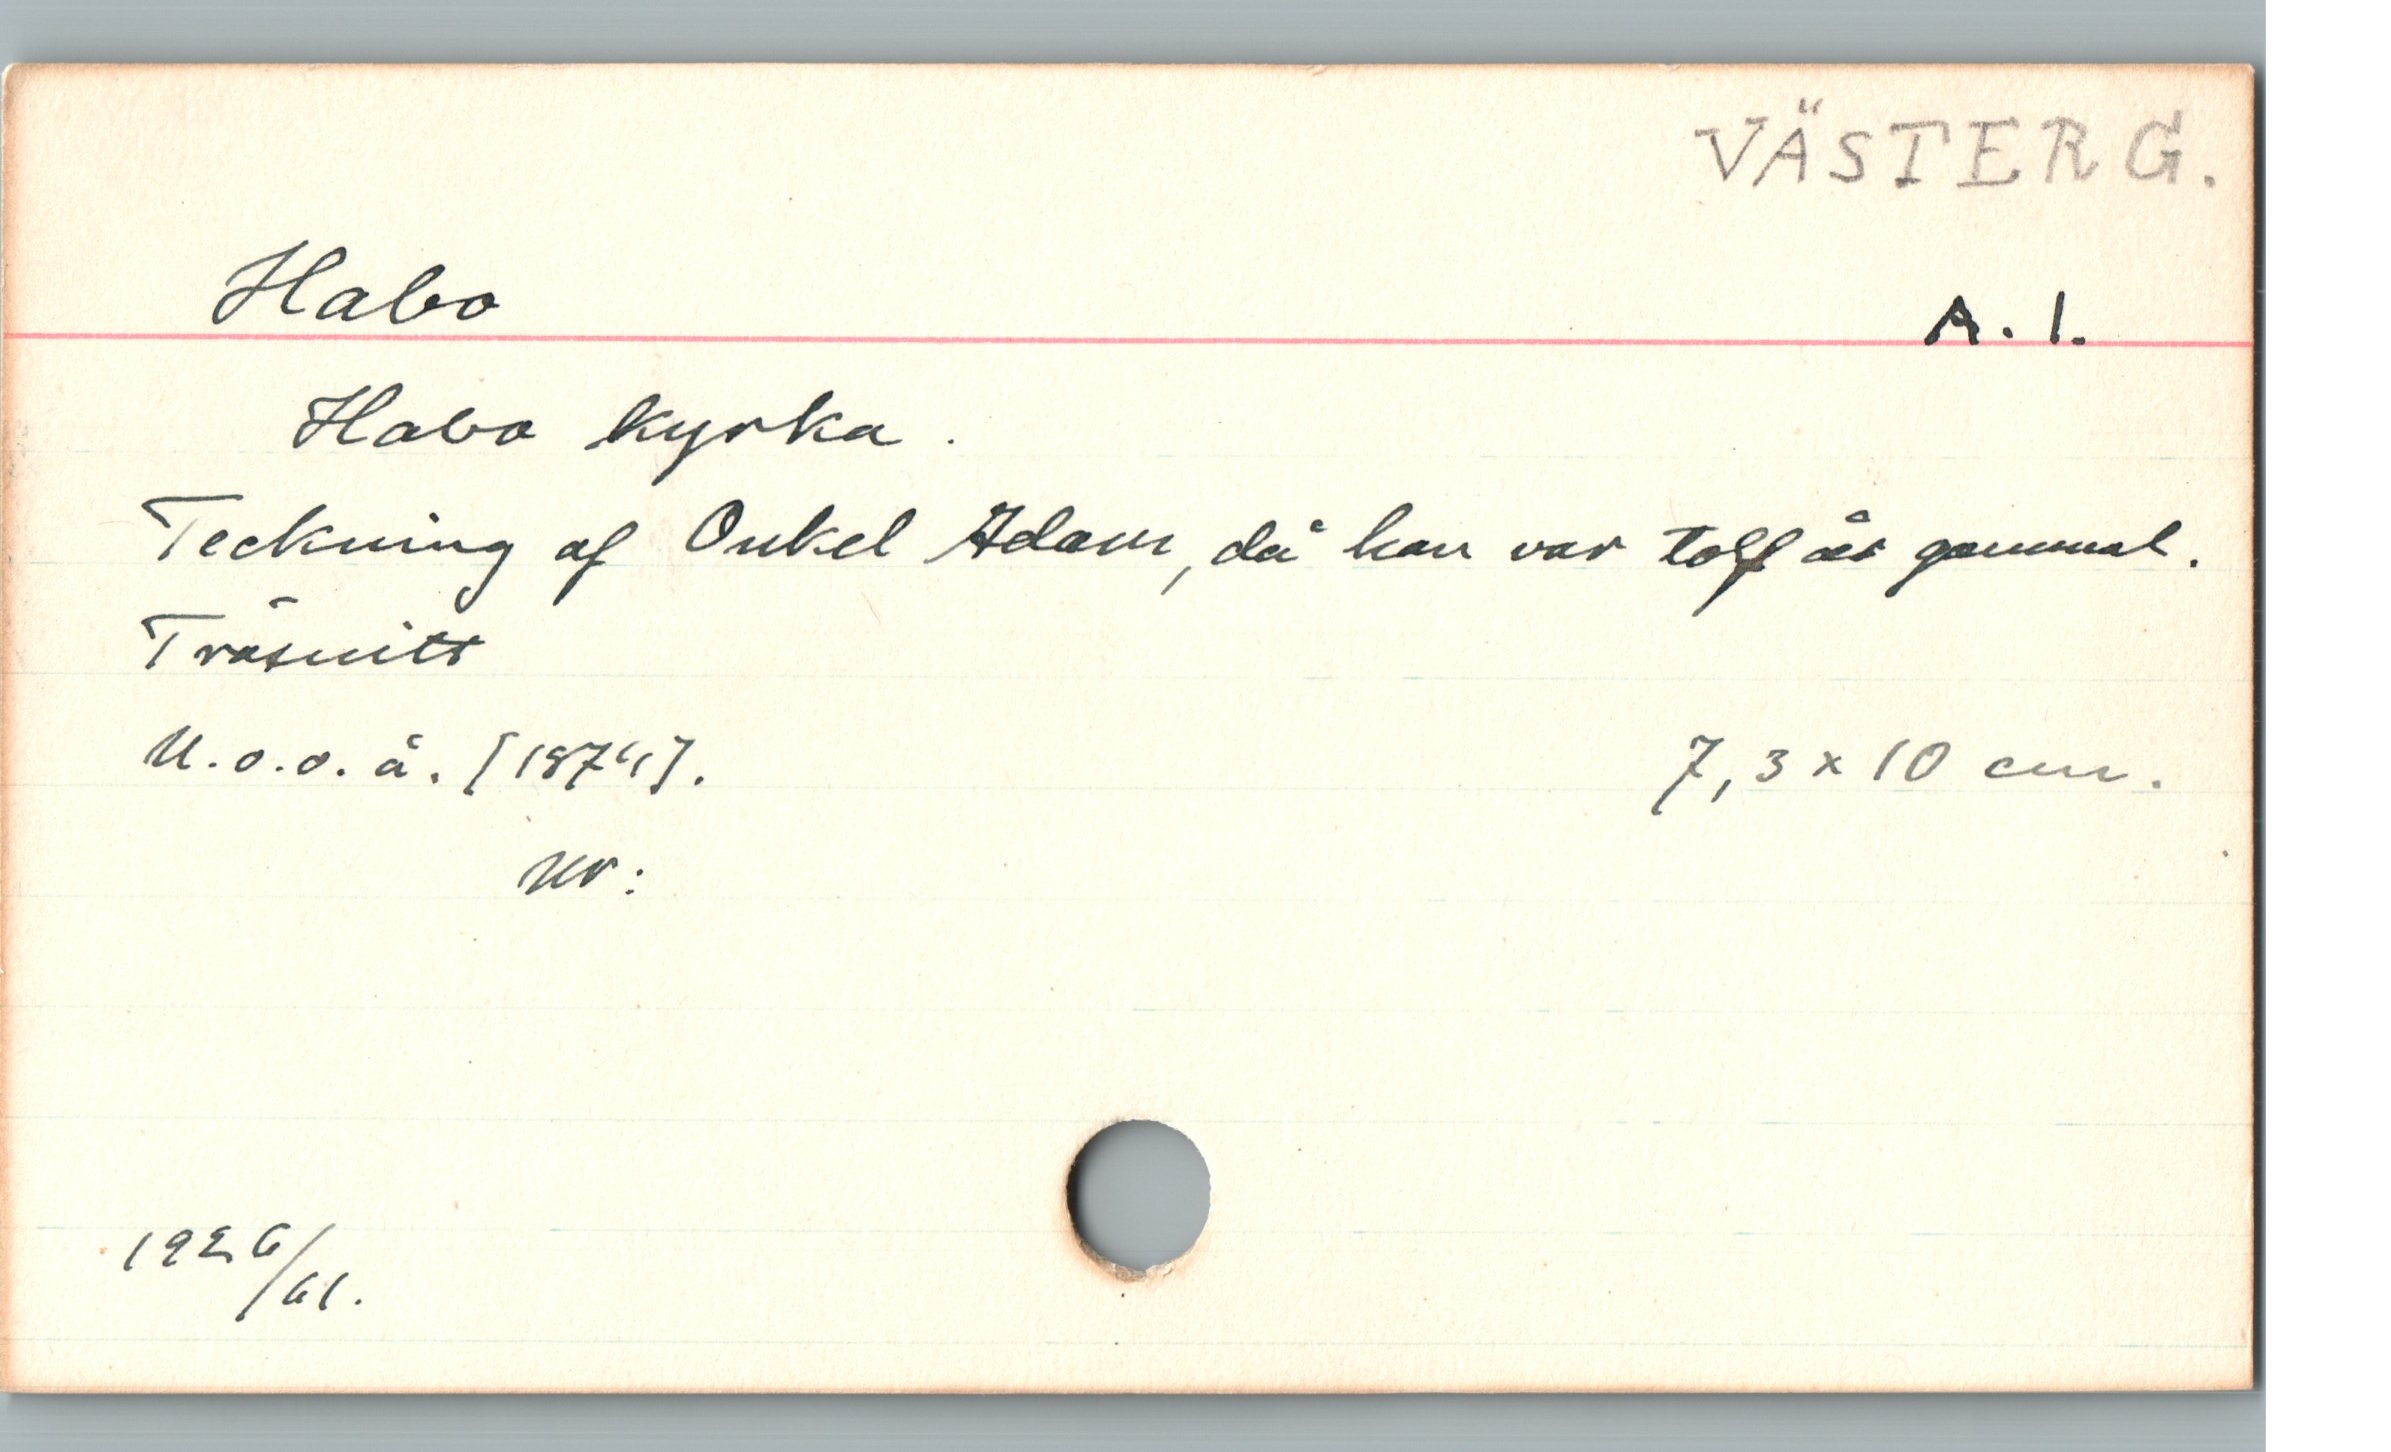 VÄSTERG.
Habo A. 1.
Habo kyrka.
Teckning af Onkel Adam, då han var tolf år gammal.
Träsnitt
U.o.o.å. [1874]. 7,3 x 10 cm.
Ur:
1926/61.